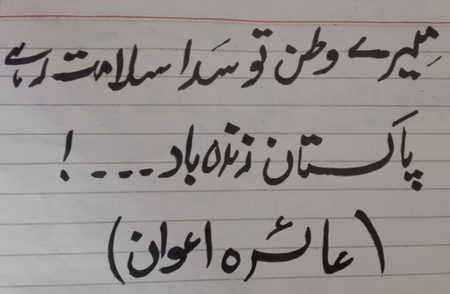 میرے وطن تو سَدا سلامت رہے
پاکستان زندہ باد ---!
(عائزہ اعوان)